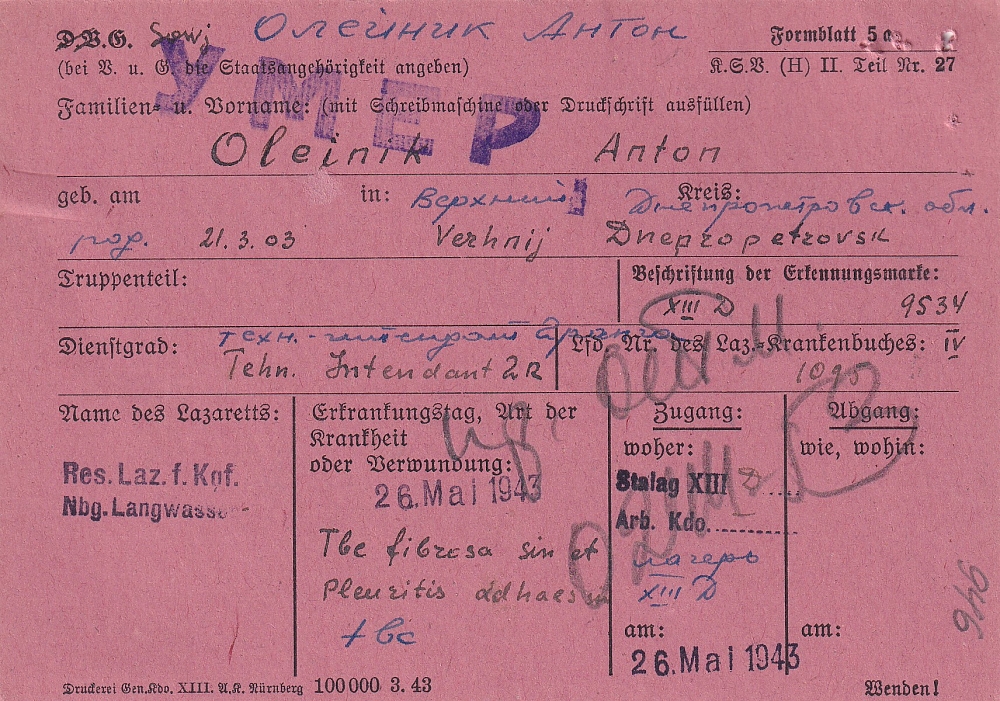 D.V.G. Sowj Олейник Антон Formblatt 5 a
(bei V. u. G. die Staatsangehörigkeit angeben) K.S.V. (H) II. Teil Nr. 27
УМЕР
Familien- u. Vorname: (mit Schreibmaschine oder Druckschrift ausfüllen)
Oleinik Anton
geb. am in: Верхний Kreis: Днепропетровск. обл.
род. 21.3.03 Verhnij Dnepropetrovsk
Truppenteil: Beschriftung der Erkennungsmarke:
XIII D 9534
техн.-интендант 2 ранга
Dienstgrad: Lfd. Nr. des Laz.-Krankenbuches: IV
Tehn. Intendant 2R 1095
Name des Lazaretts: Erkrankungstag, Art der Krankheit oder Verwundung: Zugang: Abgang:
woher: wie, wohin:
Res. Laz. f. Kgf. 26. Mai 1943 Stalag XIII D
Nbg. Langwasser Arb. Kdo.
Tbc fibrosa sin et лагерь
Pleuritis adhaes XIII D
tbc am: am:
26. Mai 1943
946
Druckerei Gen.Kdo. XIII. A.K. Nürnberg 100000 3. 43 Wenden!